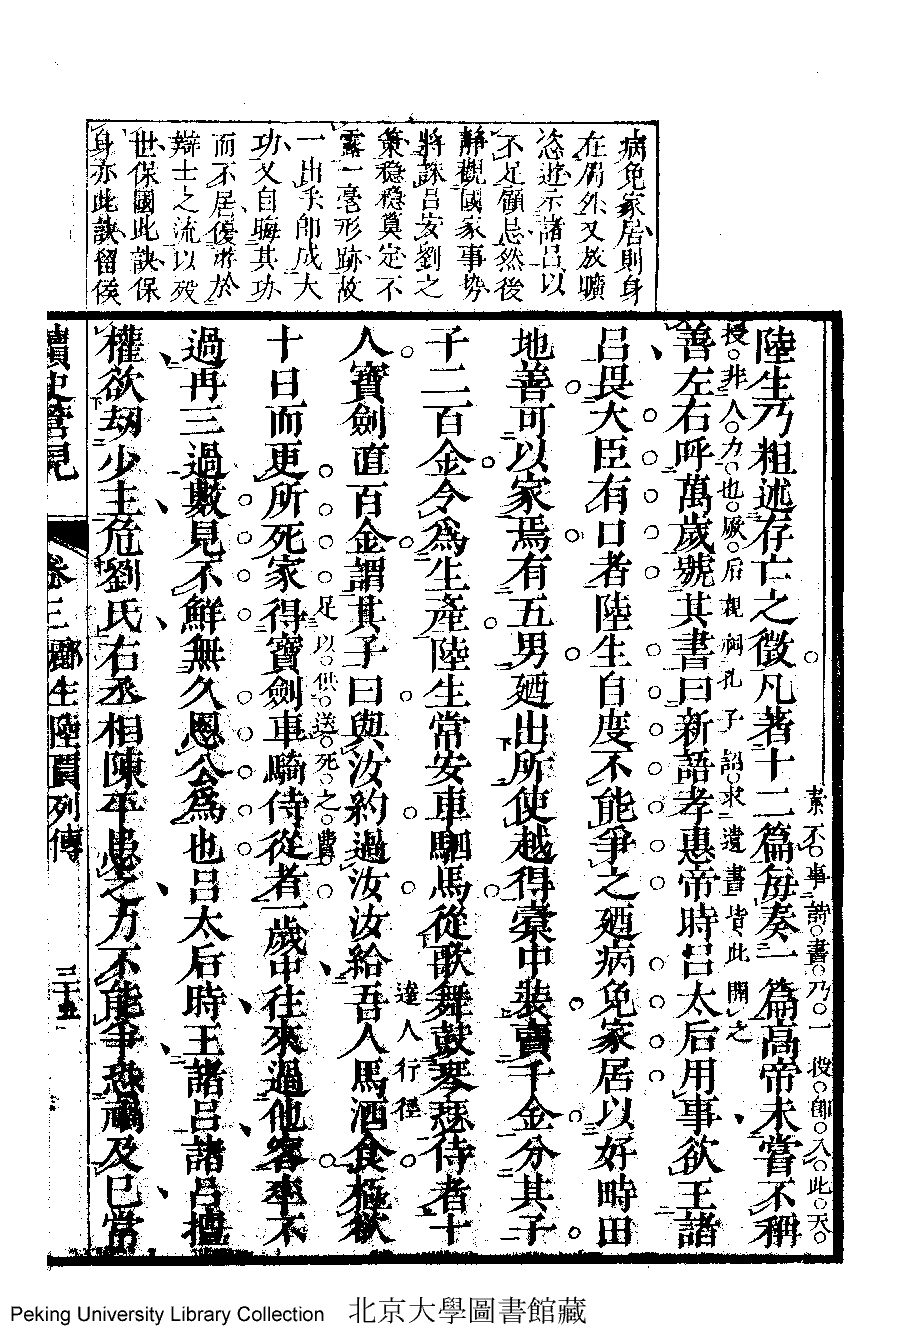 病免家居則身
在局外又放曠
恣遊示諸呂以
不足顧忌然後
靜觀國家事勢
將誅呂安劉之
策穩穩奠定不
露一毫形跡故
一出手即成大
功又自晦其功
而不居優於
辯士之流以歿
世保國此訣保
身亦此訣留侯
素不事詩書乃一投即入此天
陸生乃粗述存亡之徵凡著十二篇每奏一篇高帝未嘗不稱
授非人力也厥后親祠孔子詔求遺書皆此開之
善左右呼萬歲號其書曰新語孝惠帝時呂太后用事欲王諸
呂畏大臣有口者陸生自度不能爭之廼病免家居以好畤田
地善可以家焉有五男廼出所使越得橐中裝賣千金分其子
子二百金令為生產陸生常安車駟馬從歌舞鼓琴瑟侍者十
達人行徑
人寶劍直百金謂其子曰與汝約過汝汝給吾人馬酒食極欲
足以供送死之費
十日而更所死家得寶劍車騎侍從者一歲中往來過他客率不
過再三過數見不鮮無久慁公為也呂太后時王諸呂諸呂擅
權欲刼少主危劉氏右丞相陳平患之力不能爭恐禍及己常
讀史管見
卷三 酈生陸賈列傳
三十五
Peking University Library Collection 北京大學圖書館藏